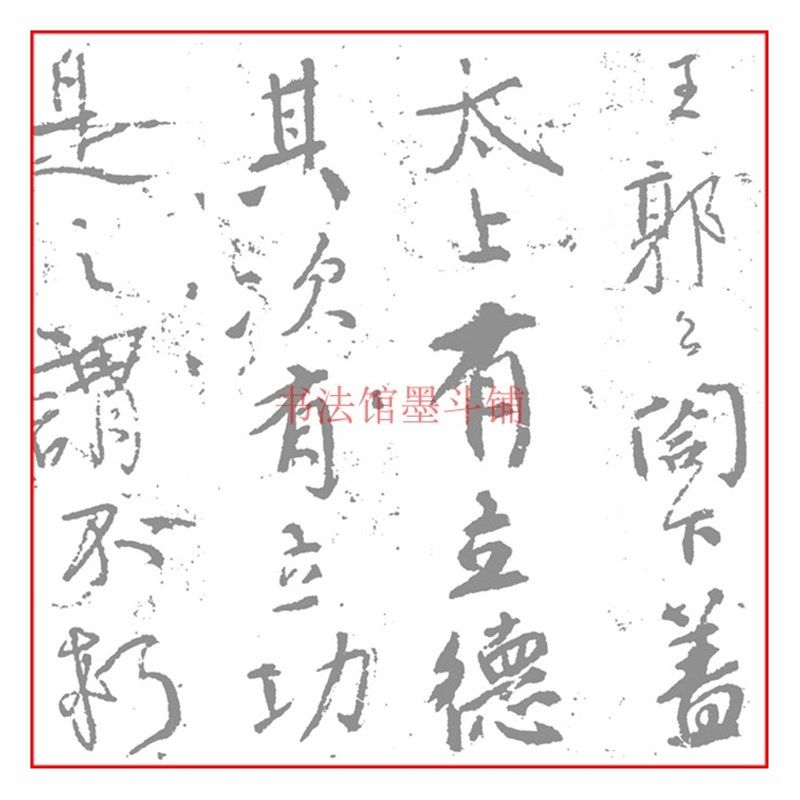 王郭公閤下蓋
太上有立德
其次有立功
是之謂不朽
书法馆墨斗铺